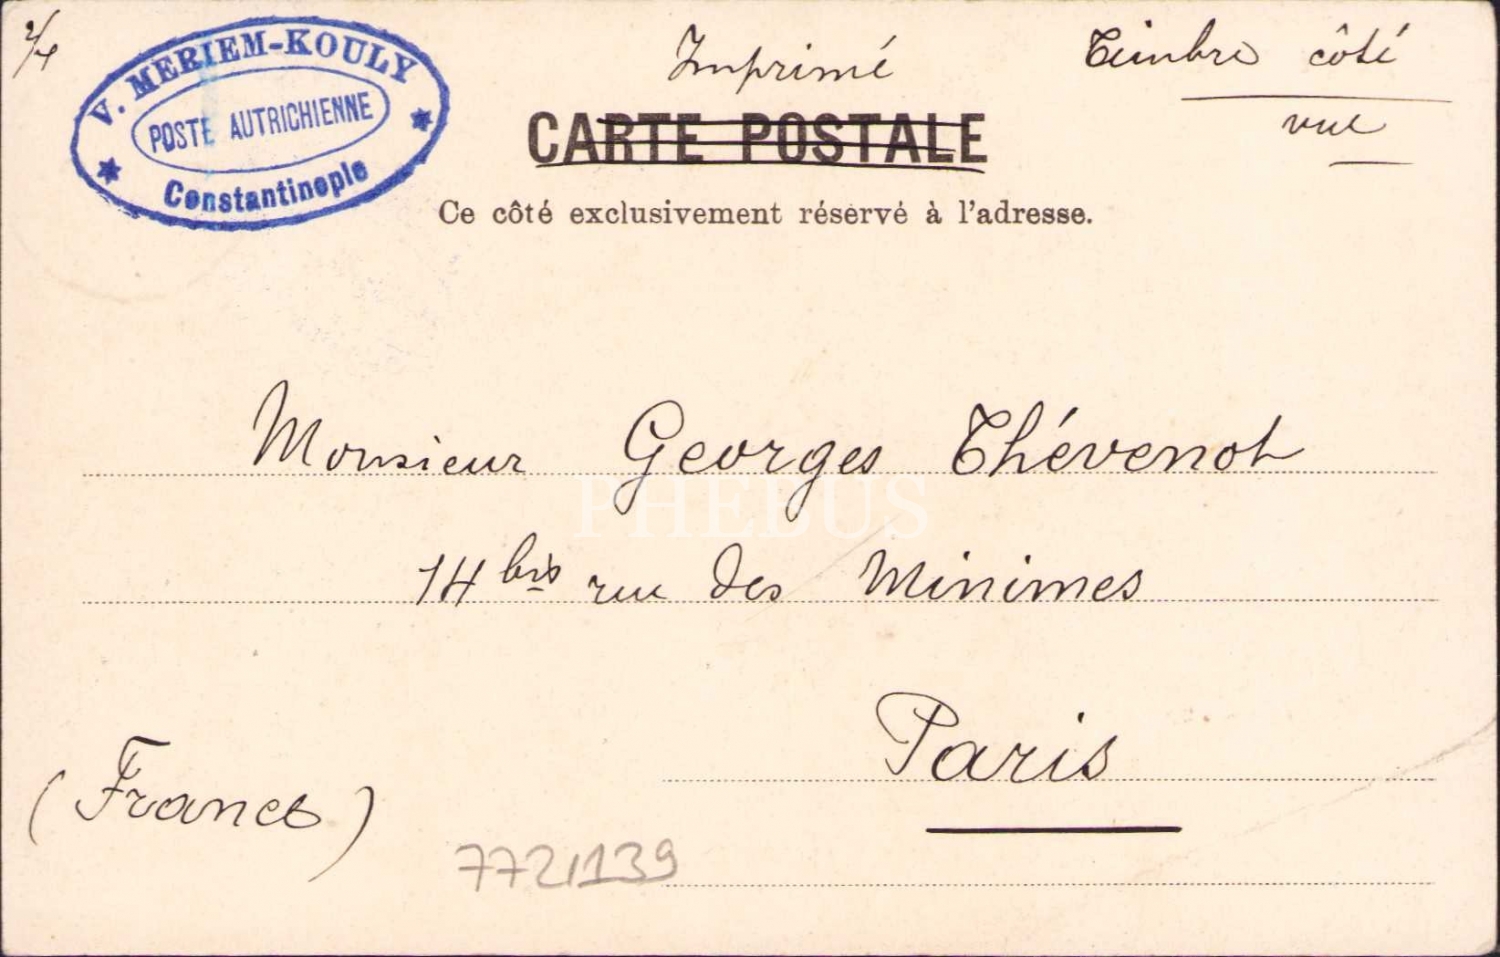 2/4
V. MERIEM-KOULY
POSTE AUTRICHIENNE
Constantinople
Imprimé
Timbre côté
vue
CARTE POSTALE
Ce côté exclusivement réservé à l'adresse.
Monsieur Georges Thévenot
PHEBUS
14 bis rue des Minimes
Paris
(France)
772/139